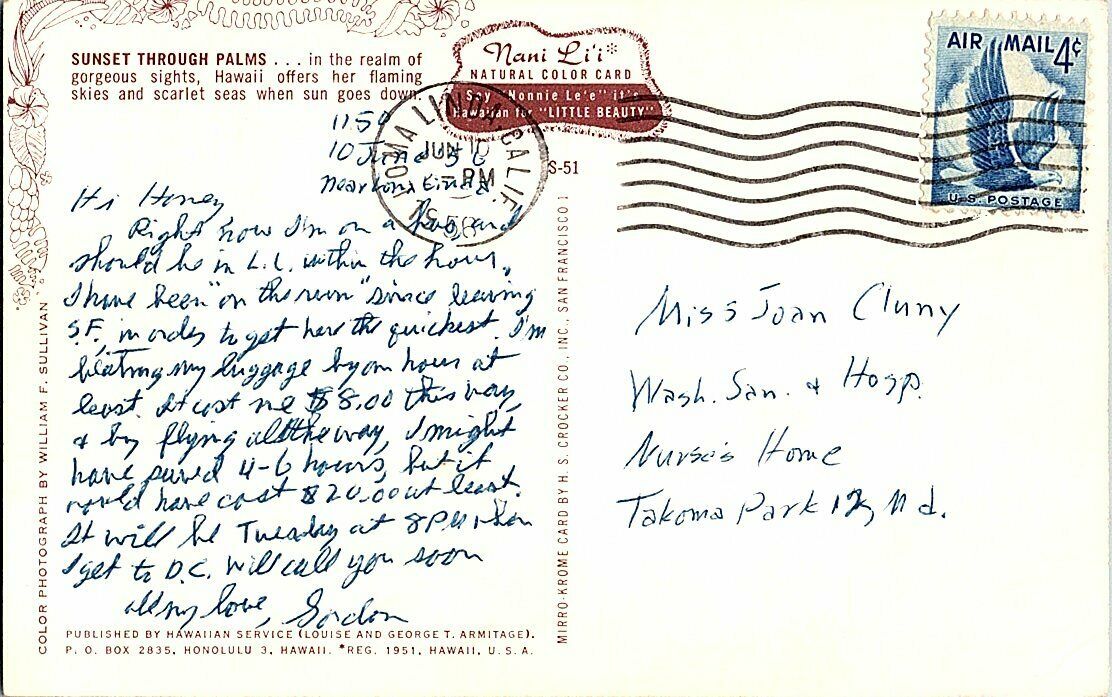 SUNSET THROUGH PALMS . . . in the realm of
gorgeous sights, Hawaii offers her flaming
skies and scarlet seas when sun goes down.
Nani Li'i*
NATURAL COLOR CARD
Say "Nonnie Le'e" it's
Hawaiian for "LITTLE BEAUTY"
AIR MAIL 4¢
U.S. POSTAGE
LOMA LINDA, CALIF.
JUN 10
PM
1150
10 June 56
Near Loma Linda
S-51
Hi Honey
Right now I'm on a bus, and
should be in L.L. within the hour.
I have been "on the run" since leaving
S.F., in order to get here the quickest. I'm
beating my luggage by an hour at
least. It cost me $8.00 this way,
& by flying all the way, I might
have saved 4-6 hours, but it
would have cost $20.00 at least.
It will be Tuesday at 8PM when
I get to D.C. Will call you soon
all my love, Gordon
Miss Joan Cluny
Wash. San. & Hosp.
Nurse's Home
Takoma Park 12, Md.
COLOR PHOTOGRAPH BY WILLIAM F. SULLIVAN
MIRRO-KROME CARD BY H. S. CROCKER CO., INC., SAN FRANCISCO 1
PUBLISHED BY HAWAIIAN SERVICE (LOUISE AND GEORGE T. ARMITAGE).
P. O. BOX 2835, HONOLULU 3, HAWAII. *REG. 1951, HAWAII, U.S.A.